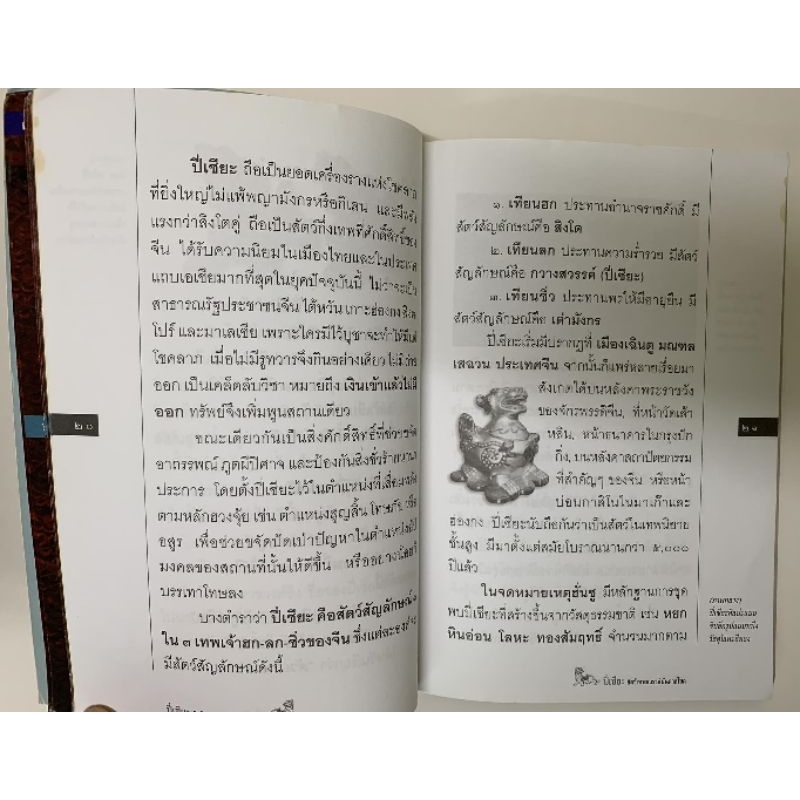 ปี่เซียะ ถือเป็นยอดเครื่องรางแห่งโชคลาภ
ที่ยิ่งใหญ่ไม่แพ้พญามังกรหรือกิเลน และมีพลัง
แรงกว่าสิงโตคู่ ถือเป็นสัตว์กึ่งเทพที่ศักดิ์สิทธิ์ของ
จีน ได้รับความนิยมในเมืองไทยและในประเทศ
แถบเอเชียมากที่สุดในยุคปัจจุบันนี้ ไม่ว่าจะเป็น
สาธารณรัฐประชาชนจีน ไต้หวัน เกาะฮ่องกง สิงค
โปร์ และมาเลเซีย เพราะใครมีไว้บูชาจะทำให้มี
โชคลาภ เมื่อไม่มีรูทวารจึงกินอย่างเดียว ไม่มี
ออก เป็นเคล็ดลับวิชา หมายถึง เงินเข้าแล้วไม่มี
ออก ทรัพย์จึงเพิ่มพูนสถานเดียว
ขณะเดียวกันเป็นสิ่งศักดิ์สิทธิ์ที่ช่วยขจัด
อาถรรพณ์ ภูตผีปีศาจ และป้องกันสิ่งชั่วร้ายนานา
ประการ โดยตั้งปี่เซียะไว้ในตำแหน่งที่เสื่อมพลัง
ตามหลักฮวงจุ้ย เช่น ตำแหน่งสูญสิ้น
อสูร เพื่อช่วยขจัดปัดเป่าปัญหาในตำแหน่งอัป
มงคลของสถานที่นั้นให้ดีขึ้น หรืออย่างน้อยก็
บรรเทาโทษลง
บางตำราว่า ปี่เซียะ คือสัตว์สัญลักษณ์
ใน ๓ เทพเจ้าฮก-ลก-ซิ่วของจีน ซึ่งแต่ละองค์
มีสัตว์สัญลักษณ์ดังนี้
๒๐
๑. เทียนฮก ประทานอำนาจราชศักดิ์ มี
สัตว์สัญลักษณ์คือ สิงโต
๒. เทียนลก ประทานความร่ำรวย มีสัตว์
สัญลักษณ์คือ กวางสวรรค์ (ปี่เซียะ)
๓. เทียนซิ่ว ประทานพรให้มีอายุยืน มี
สัตว์สัญลักษณ์คือ เต่ามังกร
ปี่เซียะเริ่มมีปรากฏที่ เมืองเฉินตู มณฑล
เสฉวน ประเทศจีน จากนั้นก็แพร่หลายเรื่อยมา
สังเกตได้บนหลังคาพระราชวัง
ของจักรพรรดิจีน, ที่หน้าวัดเส้า
หลิน, หน้าธนาคารในกรุงปัก
กิ่ง, บนหลังคาสถาปัตยกรรม
ที่สำคัญๆ ของจีน หรือหน้า
บ่อนกาสิโนในมาเก๊าและ
ฮ่องกง ปี่เซียะนับถือกันว่าเป็นสัตว์ในเทพนิยาย
ชั้นสูง มีมาตั้งแต่สมัยโบราณนานกว่า ๕,๐๐๐
ปีแล้ว
ในจดหมายเหตุฮั่นซู มีหลักฐานการขุด
พบปี่เซียะที่สร้างขึ้นจากวัสดุธรรมชาติ เช่น หยก
หินอ่อน โลหะ ทองสัมฤทธิ์ จำนวนมากตาม
๒๑
(ภาพกลาง)
ปี่เซียะ